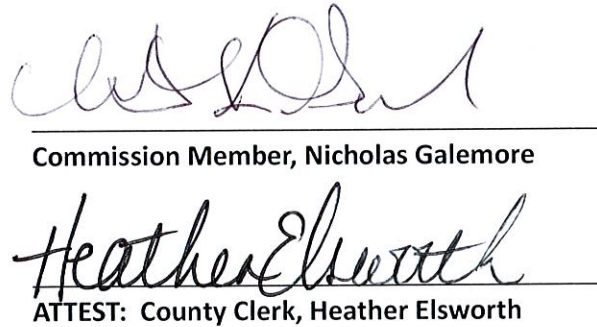 Commission Member, Nicholas Galemore
Heather Elsworth
ATTEST: County Clerk, Heather Elsworth